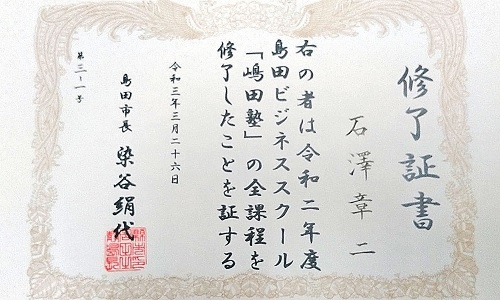 修了証書
石澤章二
右の者は令和二年度
島田ビジネススクール
「嶋田塾」の全課程を
修了したことを証する
令和三年三月二十六日
島田市長 染谷絹代
第三-一号